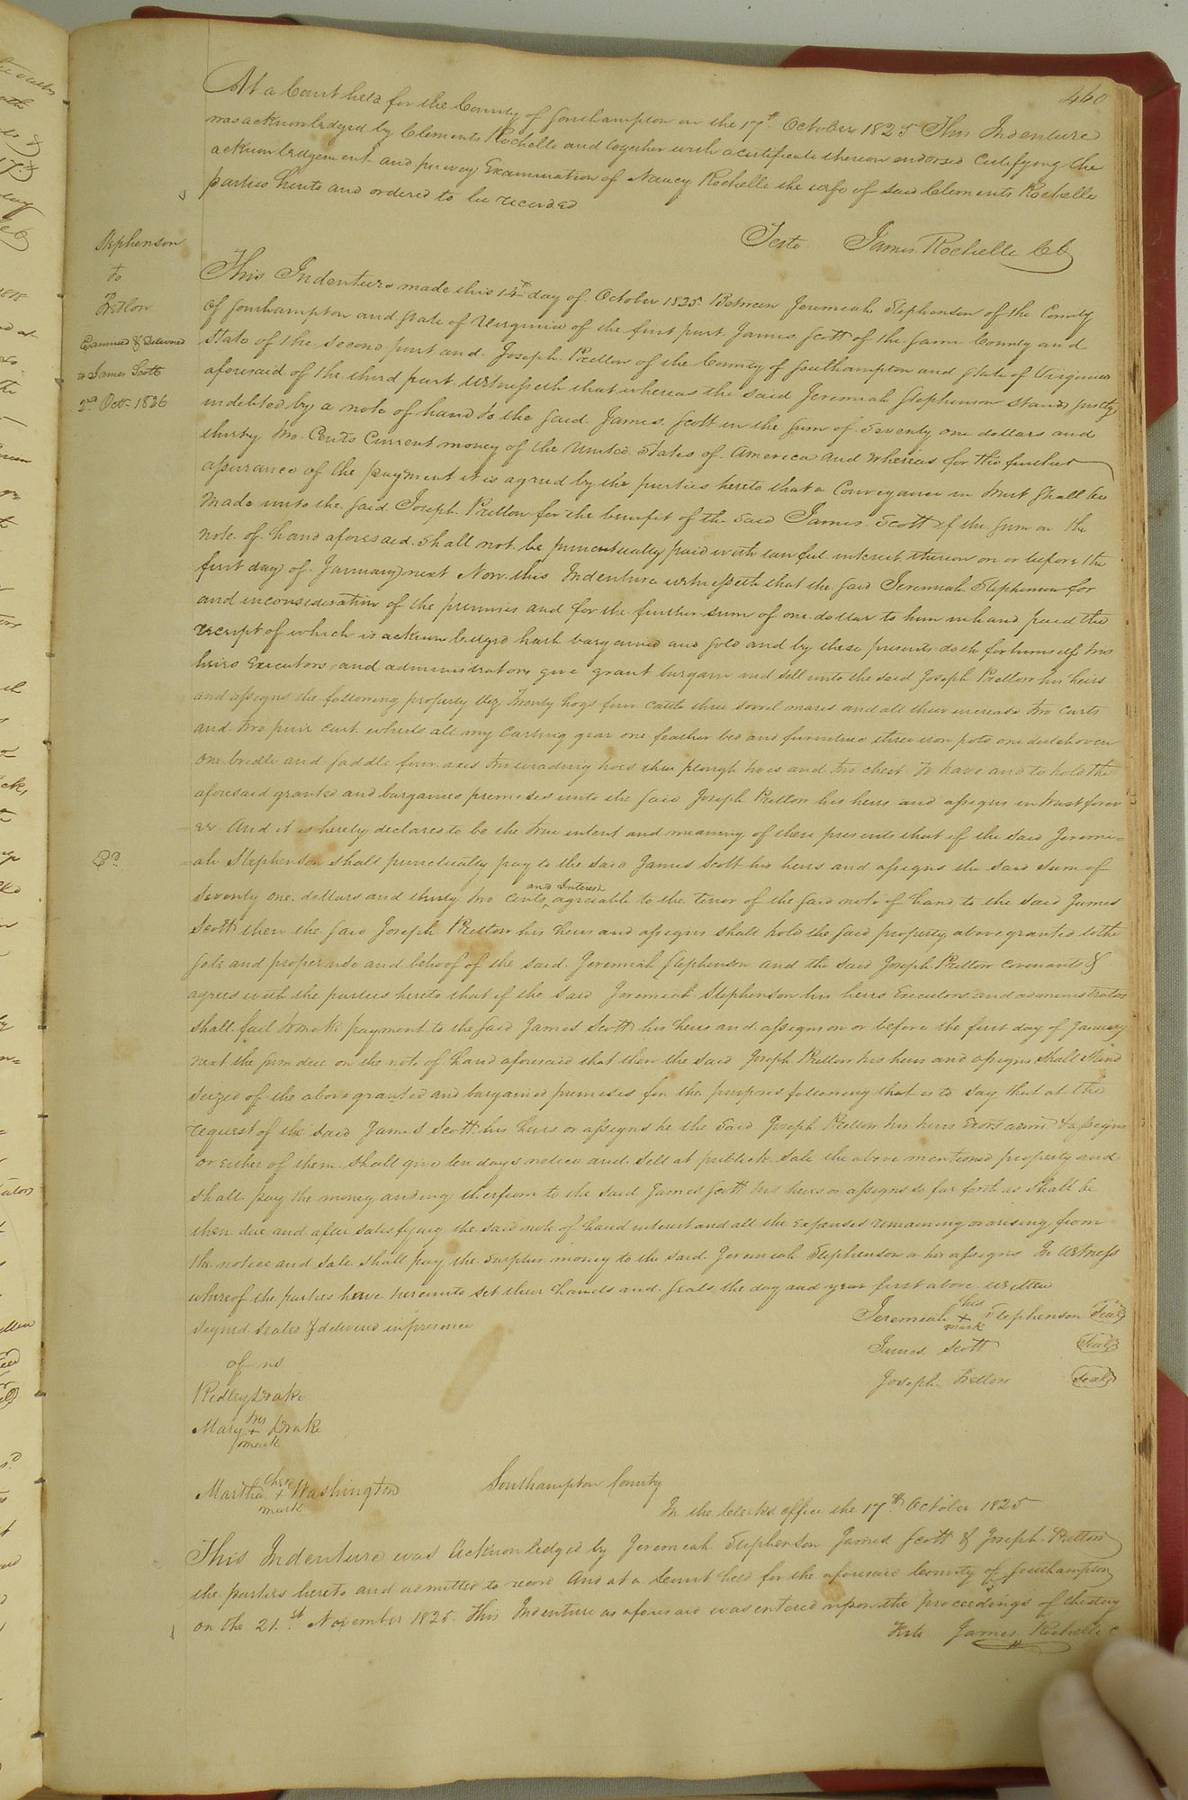 460
At a Court held for the County of Southampton on the 17th October 1825 This Indenture
was acknowledged by Clements Rochelle and together with a certificate thereon endorsed Certifying the
acknowledgement and privey Examination of Nancy Rochelle the wife of said Clements Rochelle
parties hereto and ordered to be recorded
Teste James Rochelle CC
Stephenson
to
Pretlow
Examined & Delivered
to James Scott
2nd Octr 1826
This Indenture made this 14th day of October 1825 Between Jeremiah Stephenson of the County
of Southampton and State of Virginia of the first part James Scott of the same County and
State of the second part and Joseph Pretlow of the County of Southampton and State of Virginia
aforesaid of the third part Witnesseth that whereas the said Jeremiah Stephenson stands justly
indebted by a note of hand to the said James Scott in the sum of Seventy one dollars and
thirty two Cents Current money of the United States of America and whereas for the further
assurance of the payment it is agreed by the parties hereto that a Conveyance in trust shall be
made unto the said Joseph Pretlow for the benefit of the said James Scott if the sum on the
note of hand aforesaid shall not be punctually paid with lawful interest thereon on or before the
first day of January next Now this Indenture witnesseth that the said Jeremiah Stephenson for
and inconsideration of the premises and for the further sum of one dollar to him in hand paid the
receipt of which is acknowledged hath bargained and sold and by these presents doth for himself his
heirs Executors and administrators give grant bargain and sell unto the said Joseph Pretlow his heirs
and assigns the following property Viz Twenty hogs four cattle three sorrel mares and all their increase two carts
and two pair cart wheels all my Carting gear one feather bed and furniture three iron pots one dutch oven
one bridle and saddle four axes two weeding hoes three plough hoes and two chest To have and to hold the
aforesaid granted and bargained premises unto the said Joseph Pretlow his heirs and assigns in trust forev
er And it is hereby declared to be the true intent and meaning of these presents that if the said Jeremi-
ah Stephenson shall punctually pay to the said James Scott his heirs and assigns the said sum of
Seventy one dollars and thirty two Cents and Interest agreeable to the tenor of the said note of hand to the said James
Scott then the said Joseph Pretlow his heirs and assigns shall hold the said property above granted to the
sole and proper use and behoof of the said Jeremiah Stephenson and the said Joseph Pretlow covenants &
agrees with the parties hereto that if the said Jeremiah Stephenson his heirs Executors and administrators
shall fail to make payment to the said James Scott his heirs and assigns on or before the first day of January
next the sum due on the note of hand aforesaid that then the said Joseph Pretlow his heirs and assigns shall stand
seized of the above granted and bargained premises for the purposes following that is to say that at the
request of the said James Scott his heirs or assigns he the said Joseph Pretlow his heirs Exors admrs & assigns
or either of them shall give ten days notice and sell at publick sale the above mentioned property and
shall pay the money arising therefrom to the said James Scott his heirs or assigns so far forth as shall be
then due and after satisfying the said note of hand interest and all the Expenses remaining or arising from
the notice and sale shall pay the surplus money to the said Jeremiah Stephenson or his assigns In witness
whereof the parties have hereunto set their hands and seals the day and year first above written
Signed sealed & delivered in presence
of us
Ridley Drake
Mary her + mark Drake
Martha her + mark Washington
Jeremiah his + mark Stephenson Seal
James Scott Seal
Joseph Pretlow Seal
Southampton County
In the Clerks office the 17th October 1825
This Indenture was acknowledged by Jeremiah Stephenson James Scott & Joseph Pretlow
the parties hereto and admitted to record And at a Court held for the aforesaid County of Southampton
on the 21st November 1825 This Indenture as aforesaid was entered upon the proceedings of this day
Teste James Rochelle C